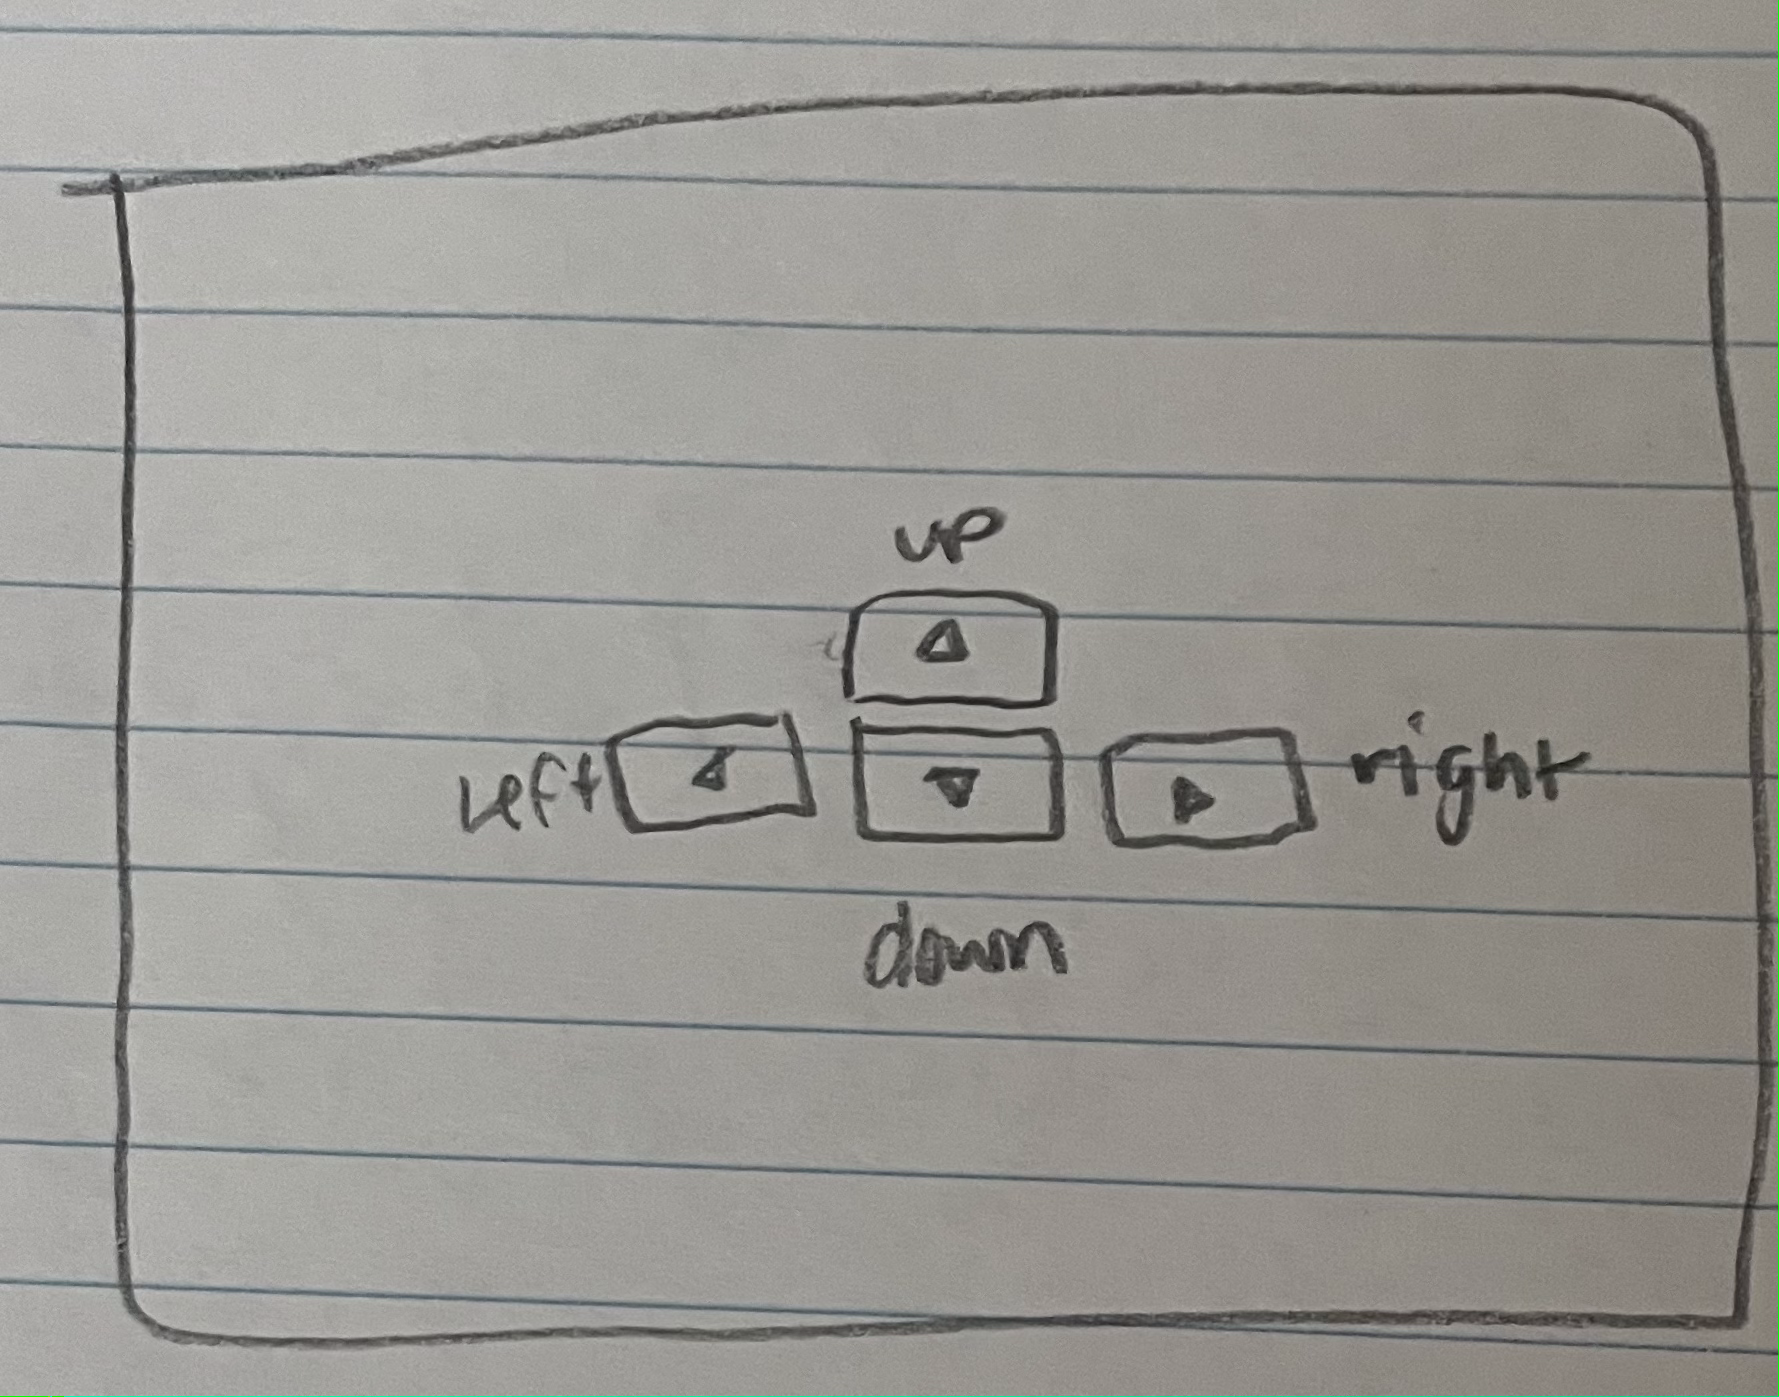 up
left
right
down